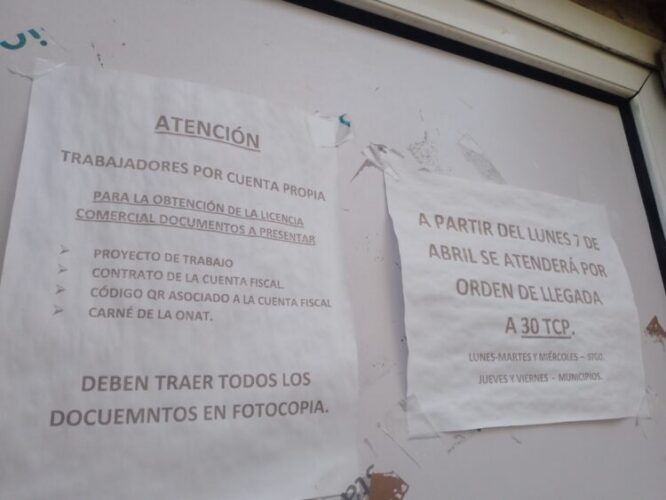 ATENCIÓN
TRABAJADORES POR CUENTA PROPIA
PARA LA OBTENCIÓN DE LA LICENCIA
COMERCIAL DOCUMENTOS A PRESENTAR
PROYECTO DE TRABAJO
CONTRATO DE LA CUENTA FISCAL.
CÓDIGO QR ASOCIADO A LA CUENTA FISCAL
CARNÉ DE LA ONAT.
DEBEN TRAER TODOS LOS
DOCUEMNTOS EN FOTOCOPIA.
A PARTIR DEL LUNES 7 DE
ABRIL SE ATENDERÁ POR
ORDEN DE LLEGADA
A 30 TCP.
LUNES-MARTES Y MIÉRCOLES – STGO.
JUEVES Y VIERNES - MUNICIPIOS.